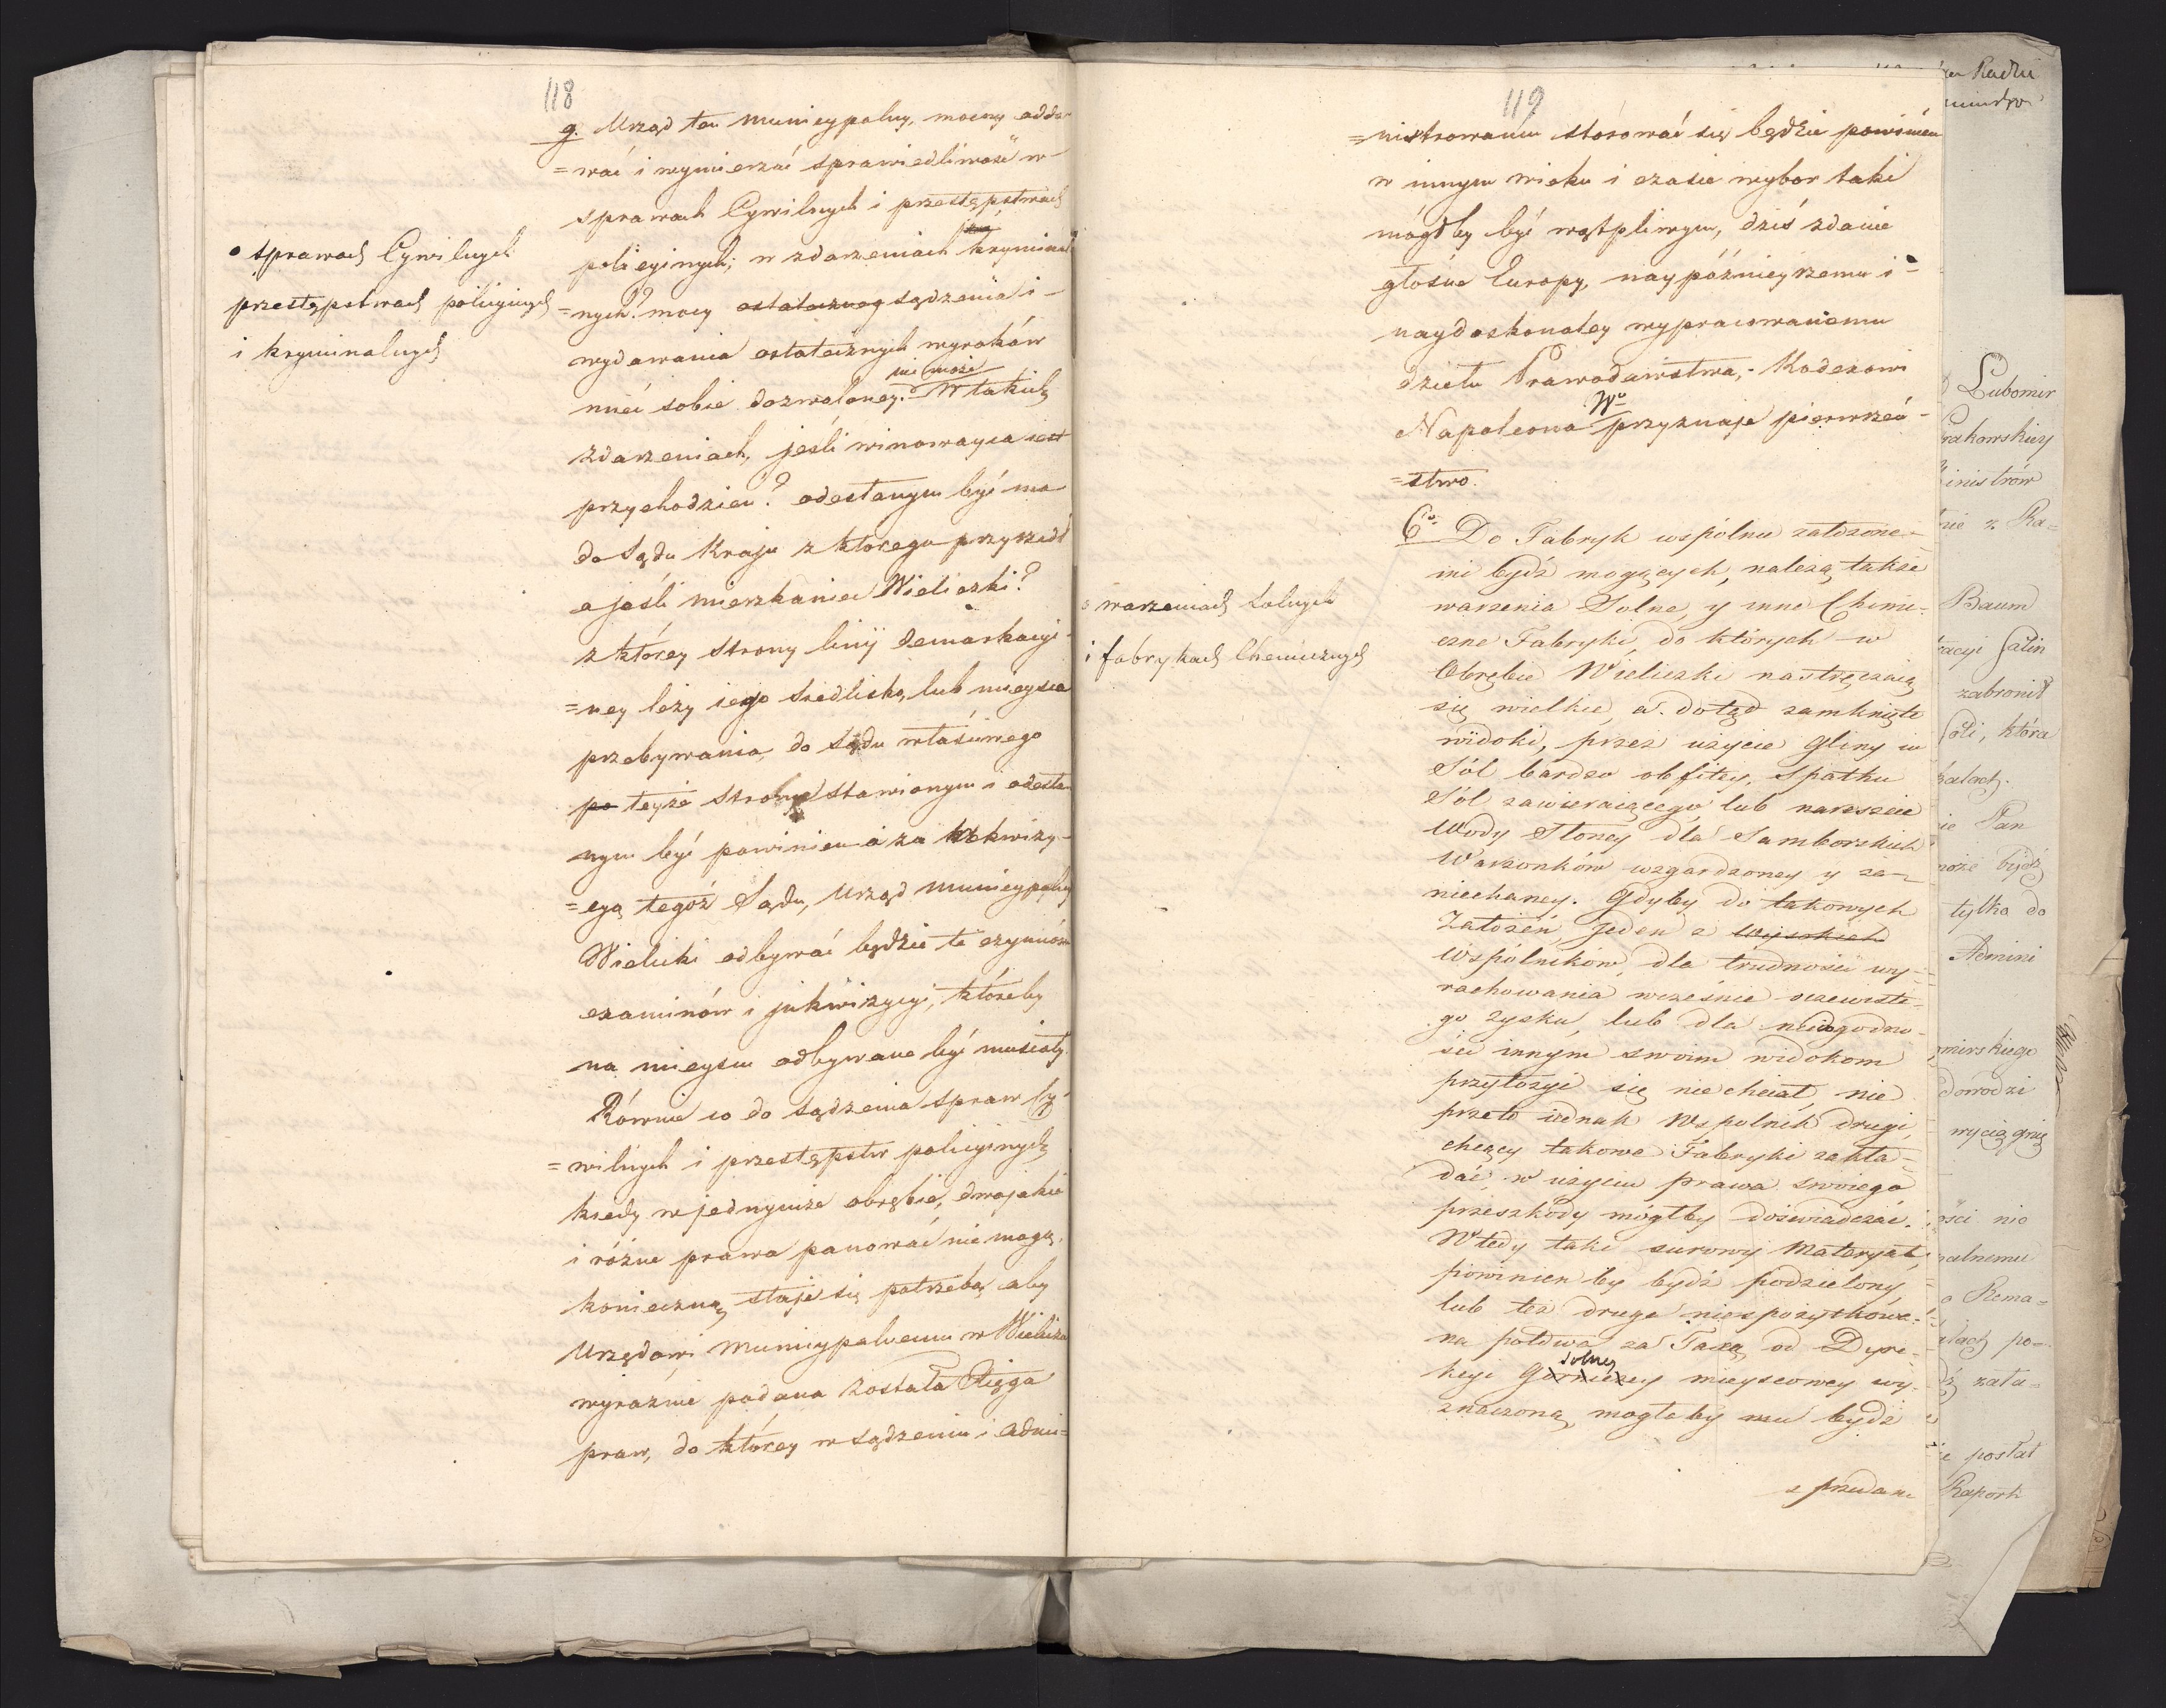 118
g. Urząd ten municypalny, mocny odda=
=wać i wymierzać sprawiedliwość w
sprawach Cywilnych i przestępstwach
policyinych; w zdarzeniach kryminal
=nych? mocy ostateczney sądzenia i
wydawania ostatecznych wyroków
nie może
mieć sobie dozwoloney. W takich
zdarzeniach, jeśli winowayca iest
przychodzien? odesłanym być ma
do Sądu Kraju z którego przyszedł
a jeśli mieszkaniec Wieliczki?
z którey strony linij demarkacyi=
=ney leży iego siedlisko, lub mieysca
przebywania, do Sądu właściwego
po teyże stronie stawionym i odesła=
nym być powinien a za rekwizy=
=cyą tegoż Sądu, Urząd municypalny
Wielicki odbywać będzie te czynnóści
examinów i inkwizycyi, któreby
na mieyscu odbywane być musiały.
Równie co do sądzenia spraw Cy=
=wilnych i przestępstw policyinych
kiedy w jednymże obrębie, dwojakie
i różne prawa panować nie mogą,
konieczną staje się potrzebą aby
Urzędowi municypalnemu w Wieliczce
wyraźnie podana została Xięga
praw, do którey w sądzeniu i admi=
o sprawach Cywilnych
przestępstwach policyinych
i kryminalnych
119
=nistrowaniu stósować się będzie powinien
w innym wieku i czasie wybor taki
mógłby być wątpliwym, dziś zdanie
głośne Europy, naypóźnieyszemu i
naydoskonaley wypracowanemu
dziełu Prawodawstwa, - Kodexowi
Napoleona Wo przyznaje pierwszeń=
=stwo.
6o Do Fabryk wspólnie założone=
mi bydź mogących, należą także
warzenia Solne, y inne Chimi=
czne Fabryki, do których w
Obrębie Wieliczki nastręczaią
się wielkie, a dotąd zamknięte
widoki, przez użycie Gliny w
Sól bardzo obfitey, Spatku
Sól zawieraiącego, lub nareszcie
Wody Słoney dla Samborskich
Warzonków wzgardzoney y za=
niechaney. Gdyby do takowych
Założeń jeden z wysokich
Wspólników, dla trudności wy=
rachowania wcześnie oczewiste=
go zysku, lub dla niedogodno=
ści innym swoim widokom
przyłożyć się niechciał, nie
przeto iednak Wspolnik drugi,
chcący takowe Fabryki zakła=
dać, w użyciu prawa swoiego
przeszkody mógłby doświadczać.
Wtedy taki surowy Materyał,
powinien by bydź podzielony
lub też druga niespożytkówa=
na połowa za Taxą od Dyre=
Solney
kcyi Górniczey mieyscowey wy=
znaczoną, mogłaby mu bydź
sprzedana
o warzeniach solnych
i fabrykach Chemicznych
Radzie
Lubomir
Krakowskiey
Ministrów
z Ra=
Baum
Salin
zabronił
Soli, która
Pan
może bydź
tylko do
Admini
dowodzi
wyciągnię
nie
Rema=
po=
zała=
posłał
Raport